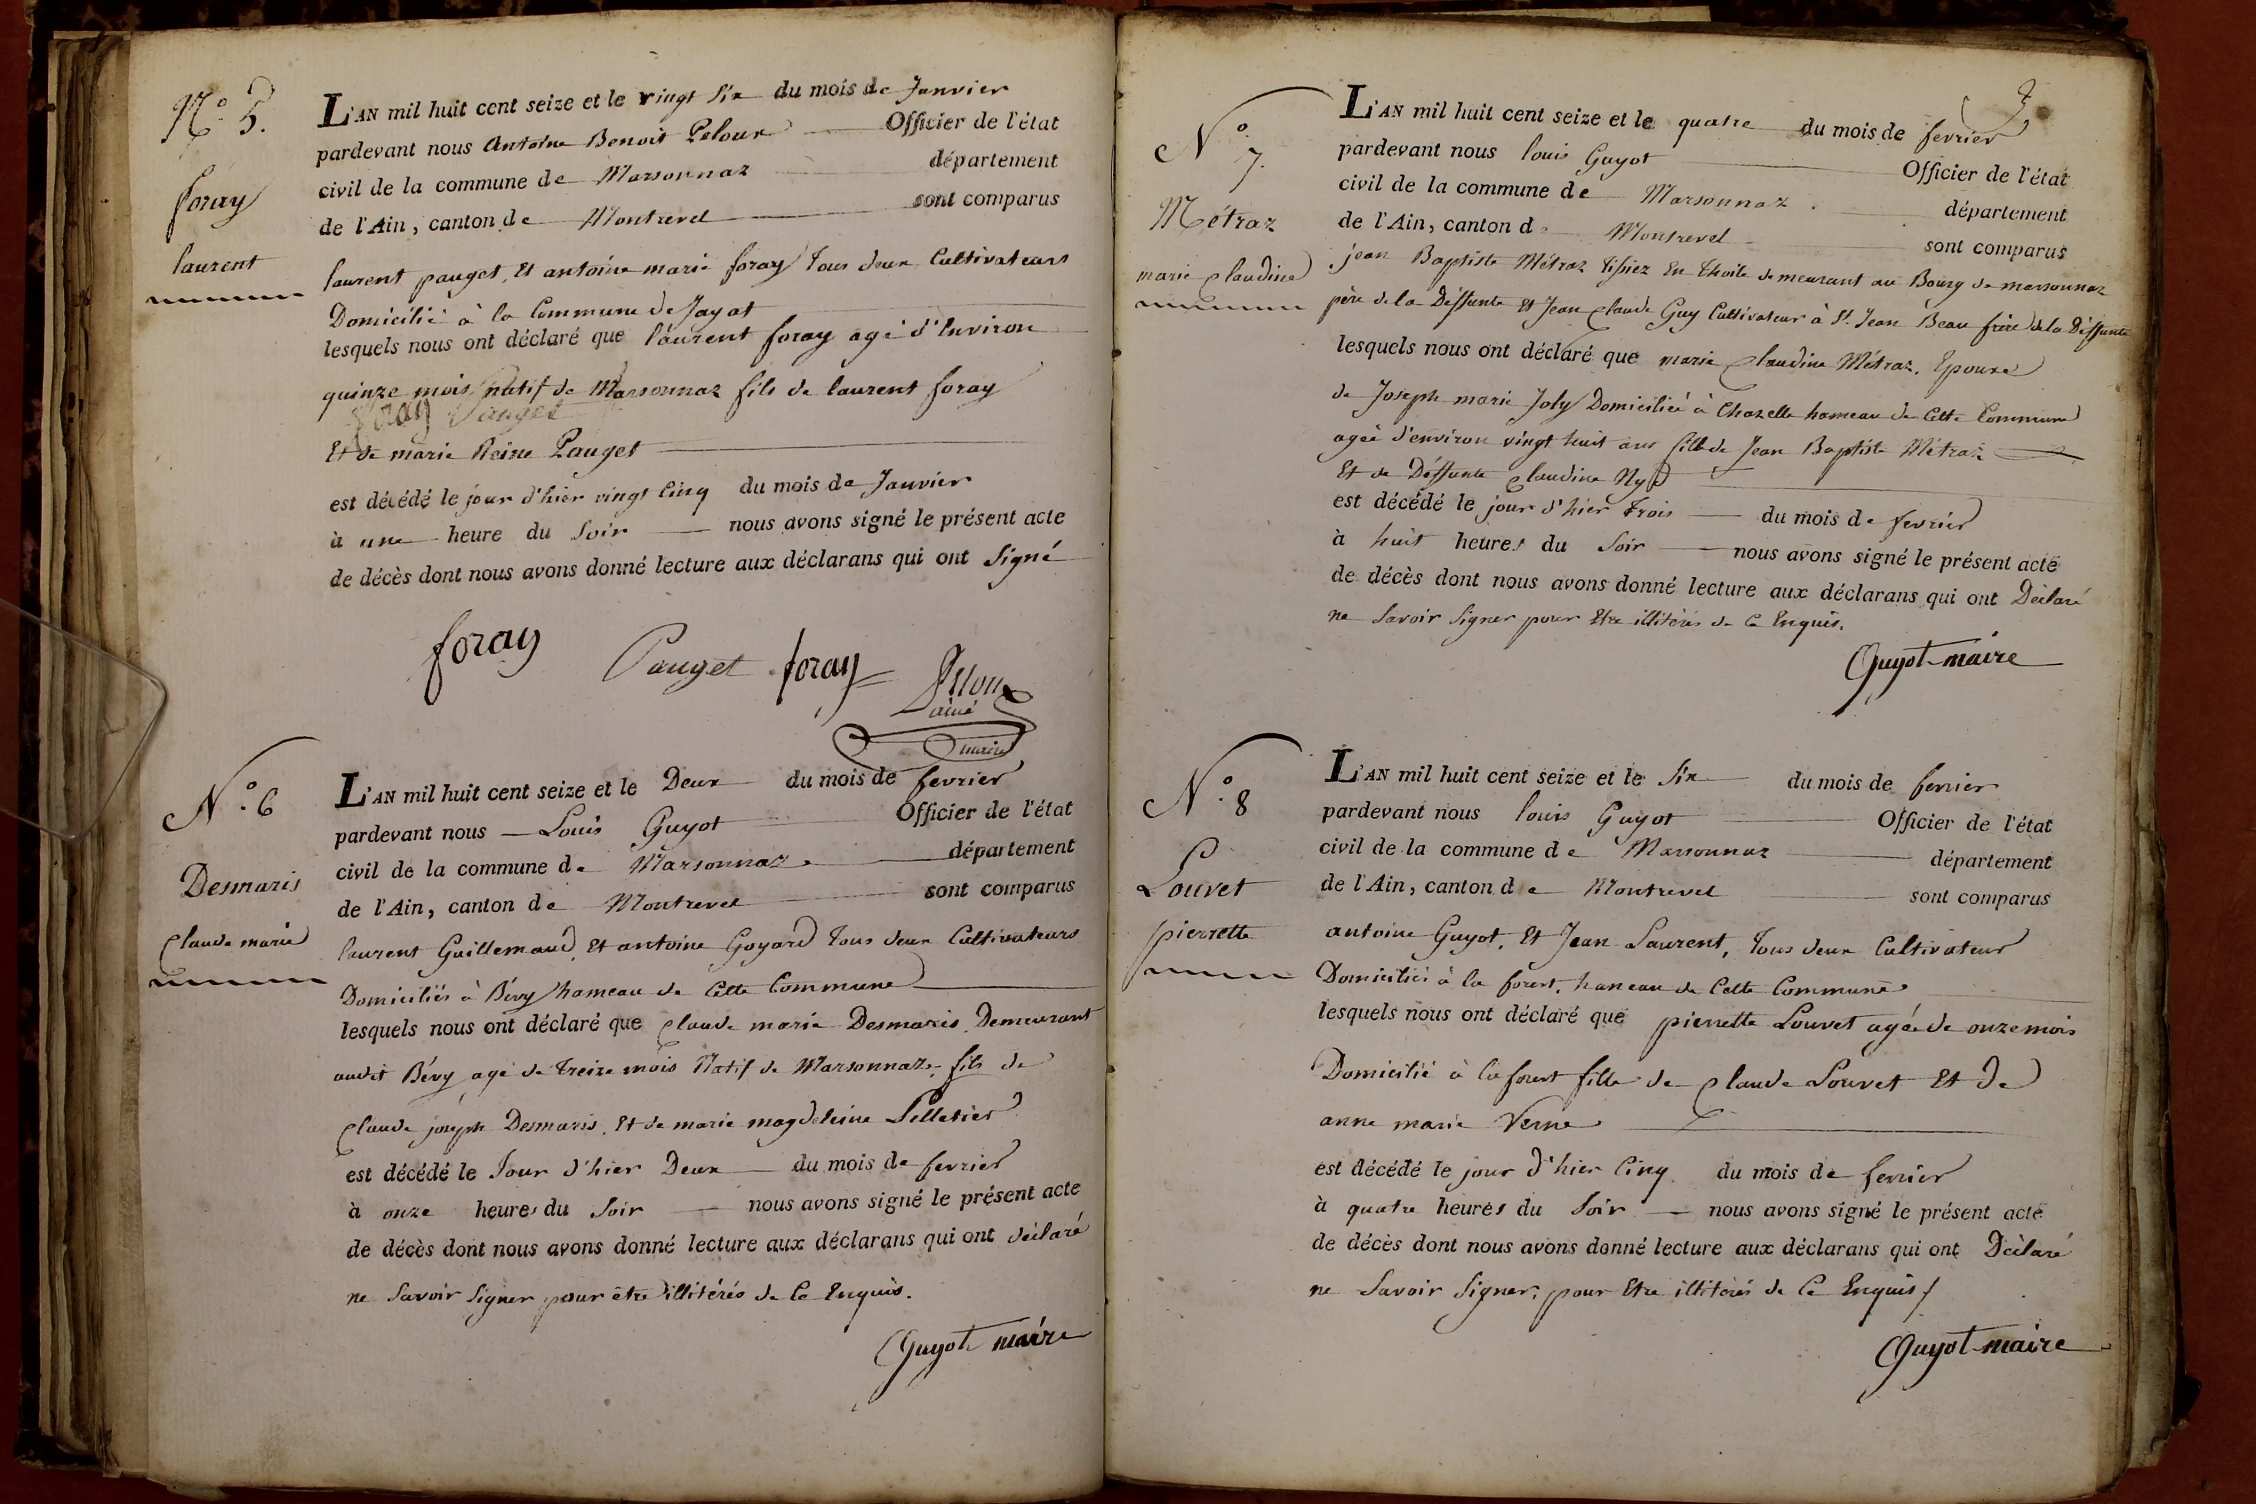 N.° 5.
foray
laurent
L'AN mil huit cent seize et le vingt six du mois de Janvier
pardevant nous Antoine Benoit Peloux Officier de l'état
civil de la commune de Marsonnaz département
de l'Ain, canton de Montrevel sont comparus
laurent pauget, Et antoine marie foray Tous deux Cultivateurs
Domicilié à la Commune de Jayat
lesquels nous ont déclaré que laurent foray agé d'Environ
quinze mois natif de Marsonnaz fils de laurent foray
Et de marie Reine Pauget
est décédé le jour d'hier vingt Cinq du mois de Janvier
à une heure du Soir nous avons signé le présent acte
de décès dont nous avons donné lecture aux déclarans qui ont Signé
foray Pauget foray Peloux
ainé
maire
N.° 6
Desmaris
Claude marie
L'AN mil huit cent seize et le Deux du mois de fevrier
pardevant nous Louis Guyot Officier de l'état
civil de la commune de Marsonnaz département
de l'Ain, canton de Montrevel sont comparus
laurent Guillemaud, Et antoine Goyard Tous deux Cultivateurs
Domiciliés à Bévy hameau de Cette Commune
lesquels nous ont déclaré que Claude marie Desmaris Demeurant
audit Bévy agé de Treize mois Natif de Marsonnaz fils de
Claude joseph Desmaris, Et de marie magdeleine Pelletier
est décédé le Jour d'hier Deux du mois de fevrier
à onze heures du Soir nous avons signé le présent acte
de décès dont nous avons donné lecture aux déclarans qui ont déclaré
ne Savoir Signer pour être illitérés de Ce Enquis.
Guyot maire
3
N.° 7.
Métraz
marie Claudine
L'AN mil huit cent seize et le quatre du mois de fevrier
pardevant nous louis Guyot Officier de l'état
civil de la commune de Marsonnaz département
de l'Ain, canton de Montrevel sont comparus
jean Baptiste Métraz Tissiez En Thoile demeurant au Bourg de marsonnaz
père de la Déffunte Et Jean Claude Guy Cultivateur à St. Jean Beau frère de la Déffunte
lesquels nous ont déclaré que marie Claudine Métraz, Epouse
de Joseph marie Joly Domicilié à Chazelle hameau de Cette Commune
ageé d'environ vingt huit ans fille de Jean Baptiste Métraz
Et de Déffunte Claudine Nyd
est décédé le jour d'hier Trois du mois de fevrier
à huit heures du Soir nous avons signé le présent acte
de décès dont nous avons donné lecture aux déclarans qui ont Déclaré
ne Savoir Signer pour Etre illitérés de Ce Enquis.
Guyot maire
N.° 8
Louvet
pierrette
L'AN mil huit cent seize et le Six du mois de fevrier
pardevant nous louis Guyot Officier de l'état
civil de la commune de Marsonnaz département
de l'Ain, canton de Montrevel sont comparus
antoine Guyot, Et Jean Laurent, Tous deux Cultivateur
Domiciliés à la forest, hameau de Cette Commune
lesquels nous ont déclaré que pierrette Louvet agée de onze mois
Domicilié à la forest fille de Claude Louvet Et de
anne marie Verne
est décédé le jour d'hier Cinq du mois de fevrier
à quatre heures du Soir nous avons signé le présent acte
de décès dont nous avons donné lecture aux déclarans qui ont Déclaré
ne Savoir Signer, pour Etre illitérés de Ce Enquis
Guyot maire